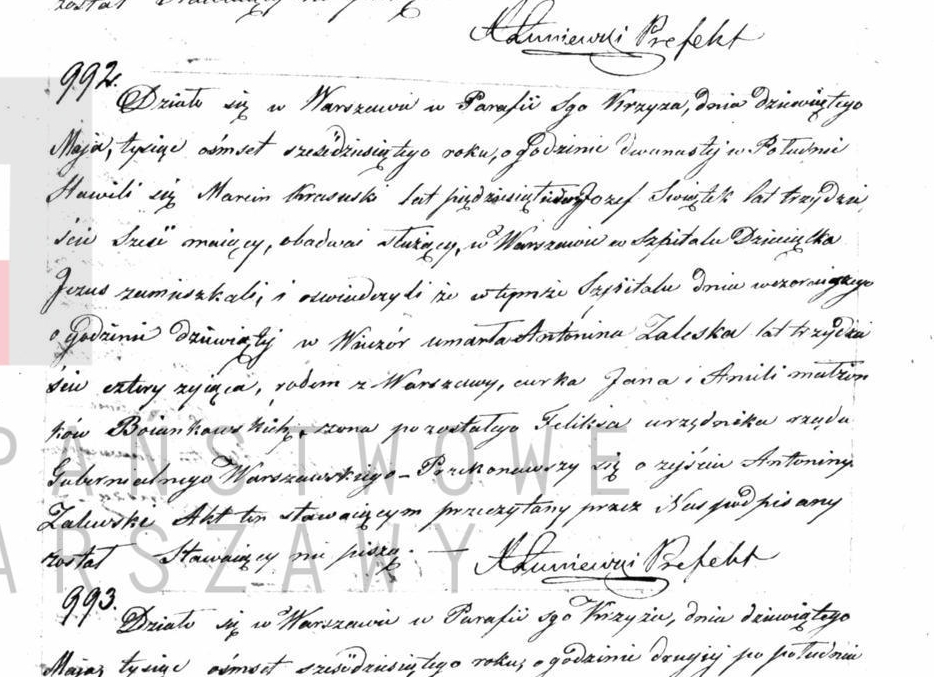 został
AŁuniewski Prefekt
992.
Działo się w Warszawie w Parafii Sgo Krzyża, dnia dziewiątego
Maja, tysiąc ośmset sześćdziesiątego roku, o godzinie dwunastej w Południe
Stawili się Marcin Krasuski lat pięćdziesiąt Jozef Swiątek lat trzydzie
ści sześć maiący, obadwai służący, w Warszawie w Szpitalu Dzieciątka
Jezus zamieszkali, i oswiadczyli że w tymże Szpitalu dnia wczorayszego
o godzinie dziewiątej w Wieczór umarła Antonina Zaleska lat trzydzie
ści cztery zyiąca, rodem z Warszawy, curka Jana i Anieli małżon
ków Boiankowskich, żona pozostałego Feliksa urzędnika rządu
Gubernialnego Warszawskiego - Przekonawszy się o zejściu Antoniny
Zalewski Akt ten stawaiącym przeczytany przez Nas podpisany
został Stawaiący nie piszą. —
AŁuniewski Prefekt
PAŃSTWOWE
WARSZAWY
993.
Działo się w Warszawie w Parafii Sgo Krzyża, dnia dziewiątego
Maja, tysiąc ośmset sześćdziesiątego roku, o godzinie drugiej po południu